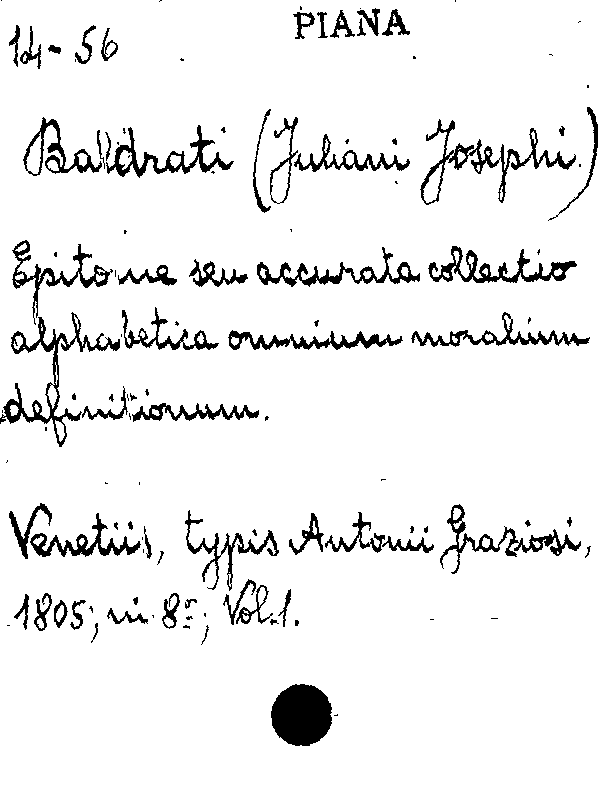 14-56
PIANA
Baldrati (Juliani Josephi)
Epitome seu accurata collectio
alphabetica omnium moralium
definitionum.
Venetiis, typis Antonii Graziosi,
1805; in 8º; Vol. 1.